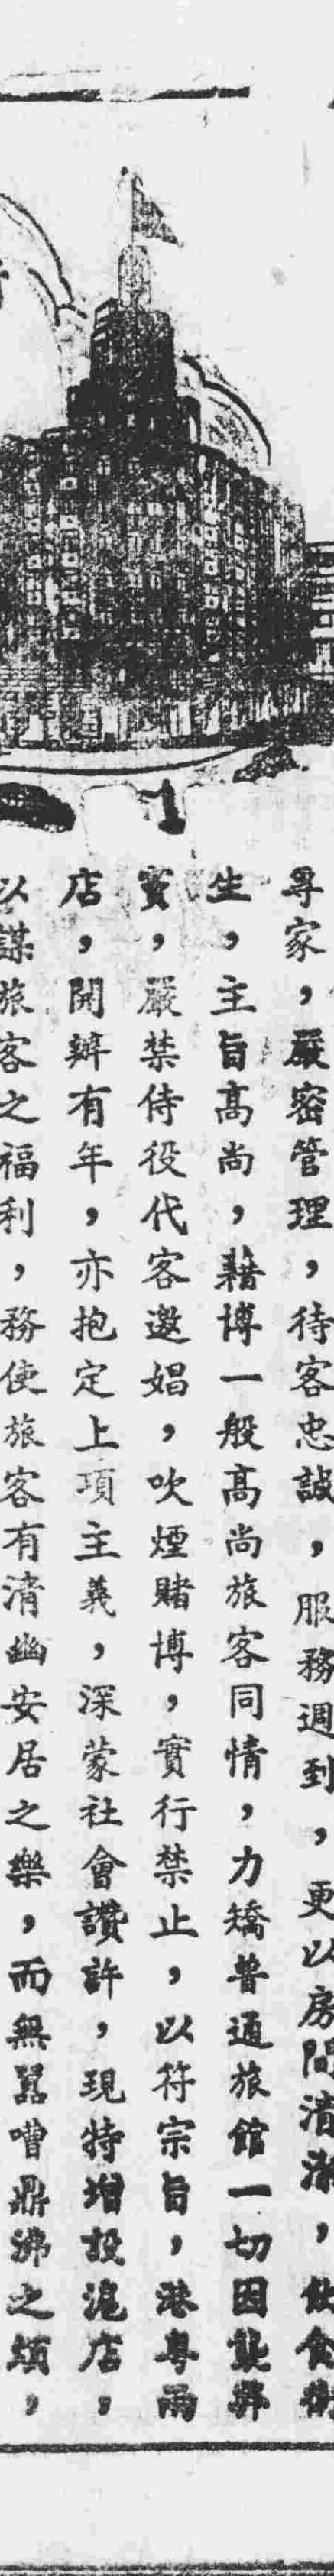 專家，嚴密管理，待客忠誠，服務週到，更以房間清潔，飲食衛
生，主旨高尚，藉博一般高尚旅客同情，力矯普通旅館一切因襲弊
竇，嚴禁侍役代客邀娼，吹煙賭博，實行禁止，以符宗旨，港粤兩
店，開辦有年，亦抱定上項主義，深蒙社會讚許，現特增設滬店，
以謀旅客之福利，務使旅客有清幽安居之樂，而無囂嘈鼎沸之煩，